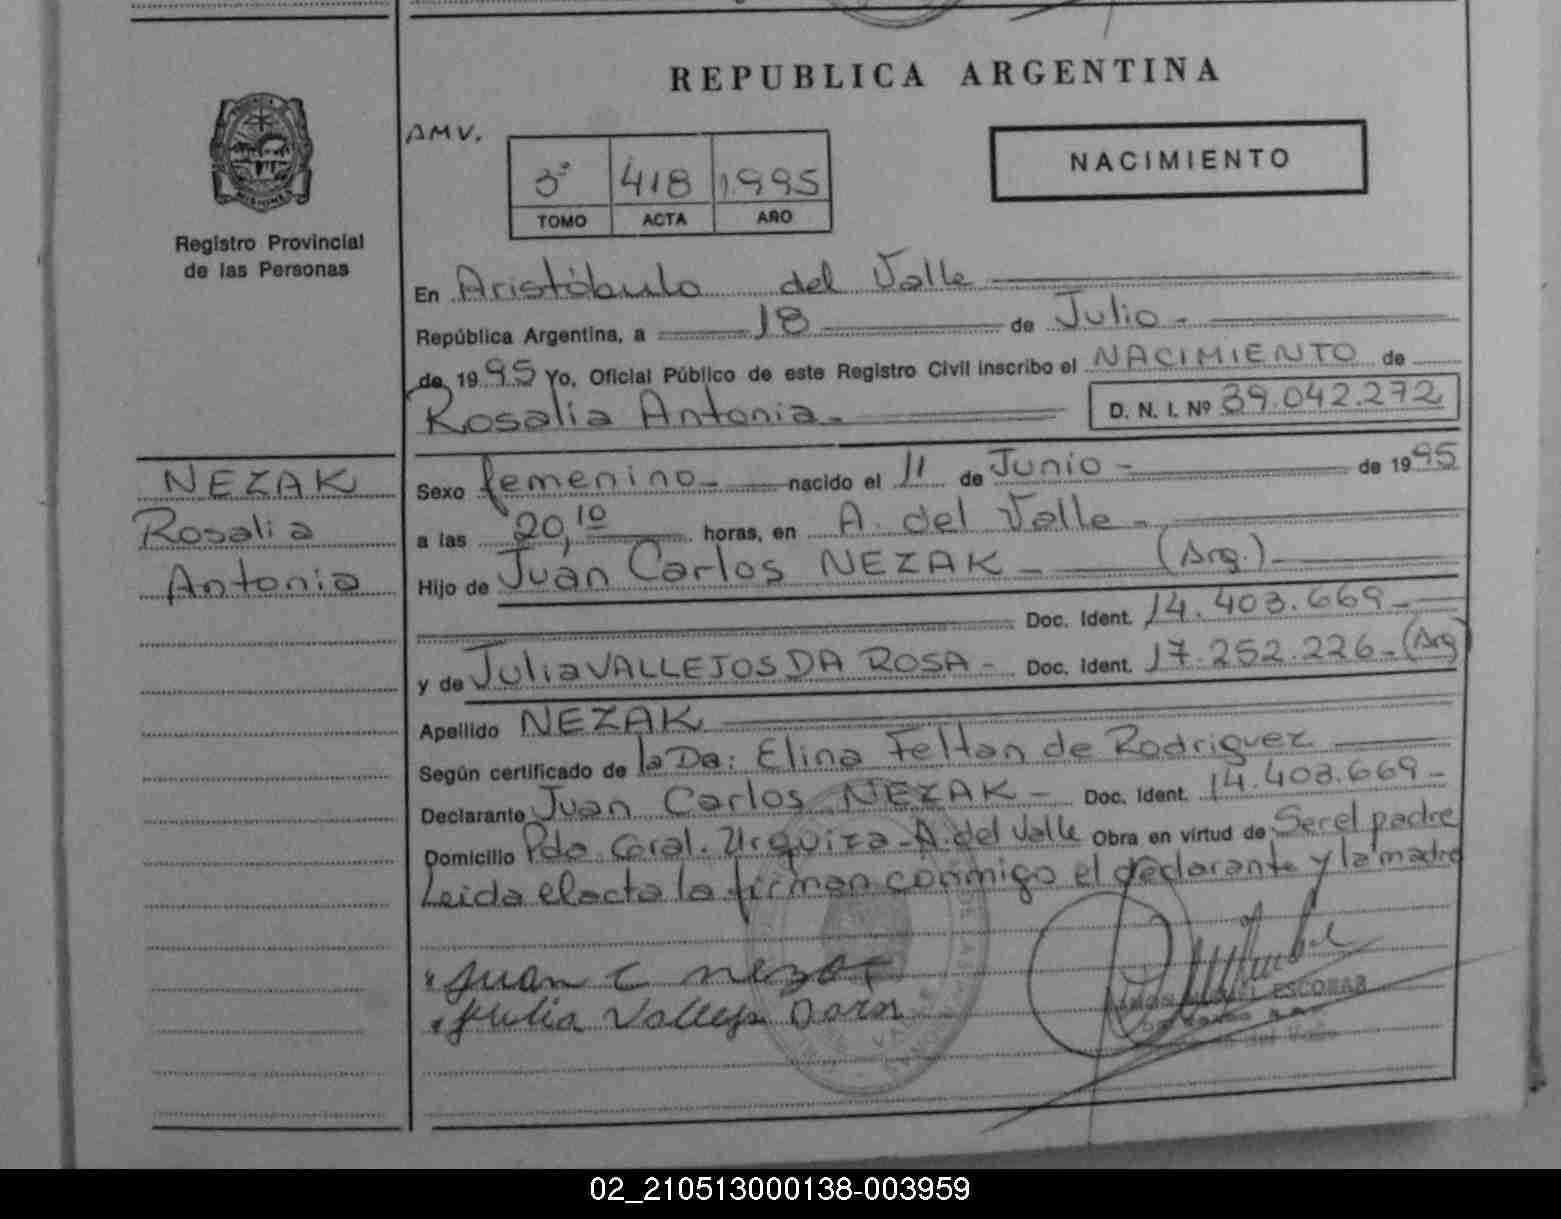 REPUBLICA ARGENTINA
MISIONES
Registro Provincial
de las Personas
AMV.
3º 418 1995
TOMO ACTA AÑO
NACIMIENTO
En Aristóbulo del Valle
República Argentina, a 18 de Julio -
de 1995 Yo, Oficial Público de este Registro Civil inscribo el NACIMIENTO de
Rosalia Antonia - D. N. I. Nº 39.042.272
NEZAK
Rosalia
Antonia
Sexo femenino - nacido el 11 de Junio - de 1995
a las 20,10 horas, en A. del Valle -
Hijo de Juan Carlos NEZAK - (Arg.)
Doc. Ident. 14.403.669 -
y de Julia VALLEJOS DA ROSA - Doc. Ident. 17.252.226 - (Arg)
Apellido NEZAK
Según certificado de la Da: Elina Feltan de Rodriguez
Declarante Juan Carlos NEZAK - Doc. Ident. 14.403.669 -
Domicilio Pdo. Gral. Urquiza - A. del Valle Obra en virtud de Ser el padre
Leida el acta la firman conmigo el declarante y la madre
Juan C Nezak
Julia Vallejo
ESCOBAR
02_210513000138-003959